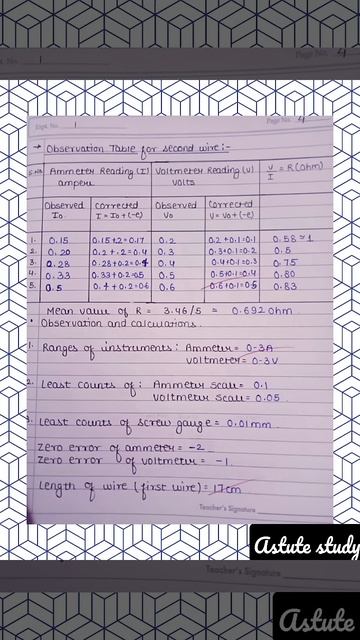 Expt. No. 1
Page No. 4
→ Observation Table for second wire:-
S.No. Ammeter Reading (I) ampere Voltmeter Reading (V) volts V/I = R (Ohm)
Observed Io Corrected I = Io + (-e) Observed Vo Corrected V = Vo + (-e)
1. 0.15 0.15+.2=0.17 0.2 0.2+0.1=0.1 0.58≈1
2. 0.20 0.2+.2=0.4 0.3 0.3+0.1=0.2 0.5
3. 0.28 0.28+0.2=0.4 0.4 0.4+0.1=0.3 0.75
4. 0.33 0.33+0.2=0.5 0.5 0.5+0.1=0.4 0.80
5. 0.5 0.4+0.2=0.6 0.6 0.6+0.1=0.5 0.83
Mean value of R = 3.46/5 = 0.692 ohm
• Observation and calculations.
1. Ranges of instruments: Ammeter = 0-3A
voltmeter = 0-3V
2. Least counts of: Ammeter scale = 0.1
Voltmeter scale = 0.05
Least counts of screw gauge = 0.01mm
zero error of ammeter = -2
zero error of voltmeter = -1
Length of wire (first wire) = 17cm
Teacher's Signature
Astute study
Teacher's Signature
Astute